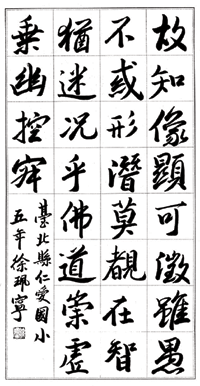 故知像顯可徵雖愚
不惑形潛莫覩在智
猶迷况乎佛道崇虛
乗幽控寂
臺北縣仁愛國小
五年徐珮寧